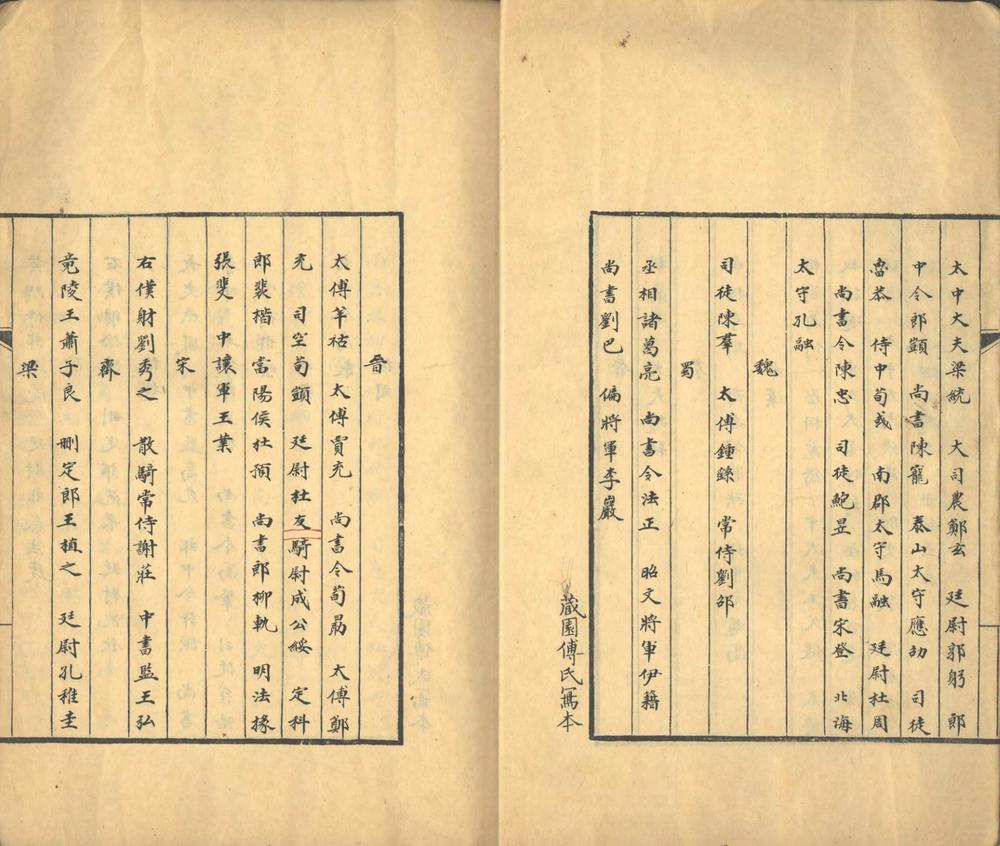 太中大夫梁統　大司農鄭玄　廷尉郭躬　郎
中令郎顗　尚書陳寵　泰山太守應劭　司徒
魯恭　侍中荀彧　南郡太守馬融　廷尉杜周
尚書令陳忠　司徒鮑昱　尚書宋登　北海
太守孔融
魏
司徒陳羣　太傅鍾繇　常侍劉邵
蜀
丞相諸葛亮　尚書令法正　昭文將軍伊籍
尚書劉巴　偏將軍李巖
藏園傅氏寫本
晉
太傅羊祜　太傅賈充　尚書令荀勗　太傅鄭
充　司空荀顗　廷尉杜友騎尉成公綏　定科
郎裴楷當陽侯杜預　尚書郎柳軌　明法掾
張斐　中讓軍王業
宋
右僕射劉秀之　散騎常侍謝莊　中書監王弘
齊
竟陵王蕭子良　刪定郎王植之　廷尉孔稚圭
梁